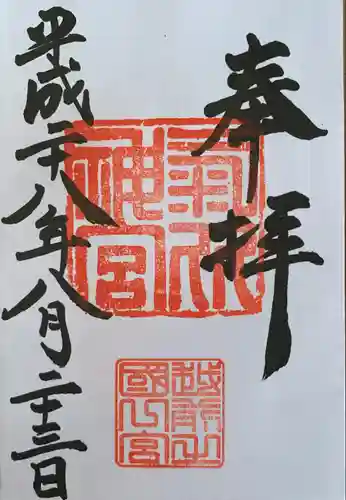 奉拝
平成二十八年八月二十三日
氣比神宮
越前之國一宮